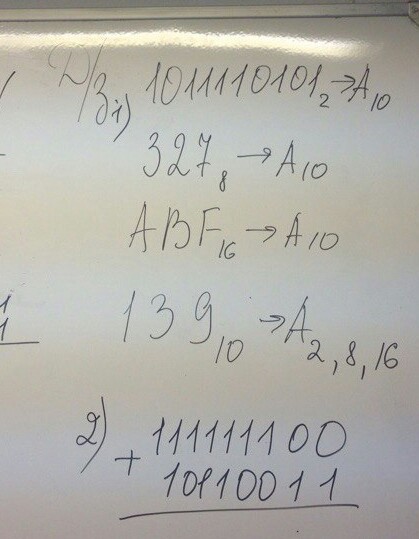 Д/З 1) 1011110101₂→A₁₀
327₈→A₁₀
ABF₁₆→A₁₀
139₁₀→A₂,₈,₁₆
2) 111111100
+ 10110011